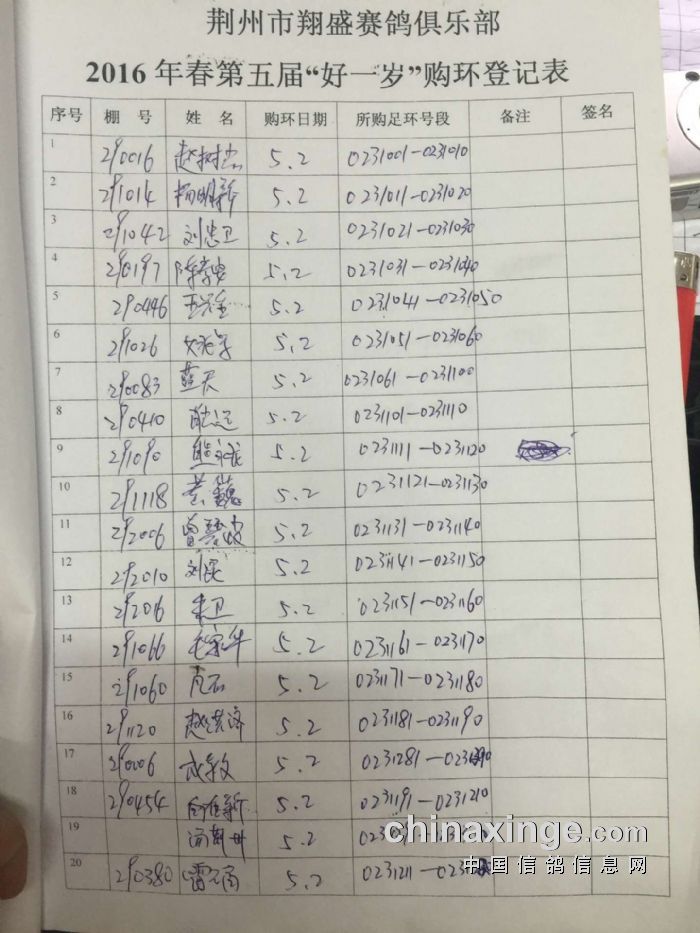 荆州市翔盛赛鸽俱乐部
2016年春第五届“好一岁”购环登记表
序号 棚 号 姓 名 购环日期 所购足环号段 备注 签名
1 290016 赵树 5.2 0231001-0231010
2 291014 杨明新 5.2 0231011-0231020
3 291042 刘忠卫 5.2 0231021-0231030
4 290197 5.2 0231031-0231040
5 290446 5.2 0231041-0231050
6 291026 5.2 0231051-0231060
7 290083 蓝天 5.2 0231061-0231100
8 290410 5.2 0231101-0231110
9 291090 5.2 0231111-0231120
10 291118 黄巍 5.2 0231121-0231130
11 292006 5.2 0231131-0231140
12 292010 刘 5.2 0231141-0231150
13 292016 朱卫 5.2 0231151-0231160
14 291066 5.2 0231161-0231170
15 291060 5.2 0231171-0231180
16 291120 赵 5.2 0231181-0231190
17 290006 5.2 0231281-
18 290454 新 5.2 0231191-0231210
19 5.2
20 290380 雷 5.2 0231211-
chinaxinge.com
中国信鸽信息网